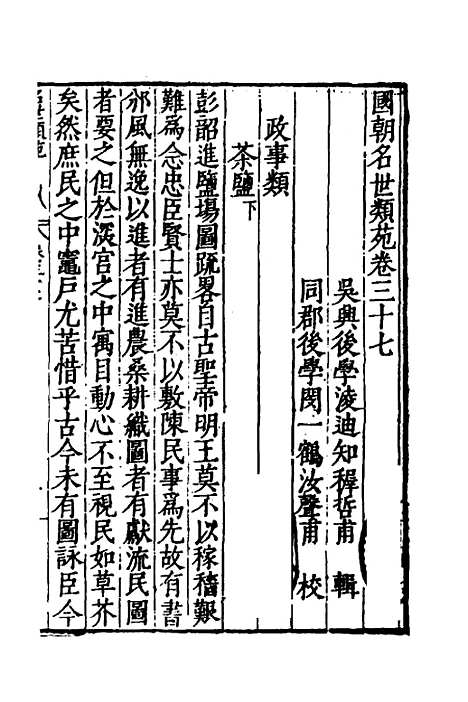 國朝名世類苑卷三十七
吳興後學淩迪知穉哲甫 輯
同郡後學閔一鶴汝聲甫 校
政事類
茶鹽下
彭韶進鹽場圖䟽畧自古聖帝明王莫不以稼穡艱
難爲念忠臣賢士亦莫不以敷陳民事爲先故有書
邠風無逸以進者有進農桑耕織圖者有獻流民圖
者要之但於深宫之中寓目動心不至視民如草芥
矣然庶民之中竈戶尤苦惜乎古今未有圖詠臣今